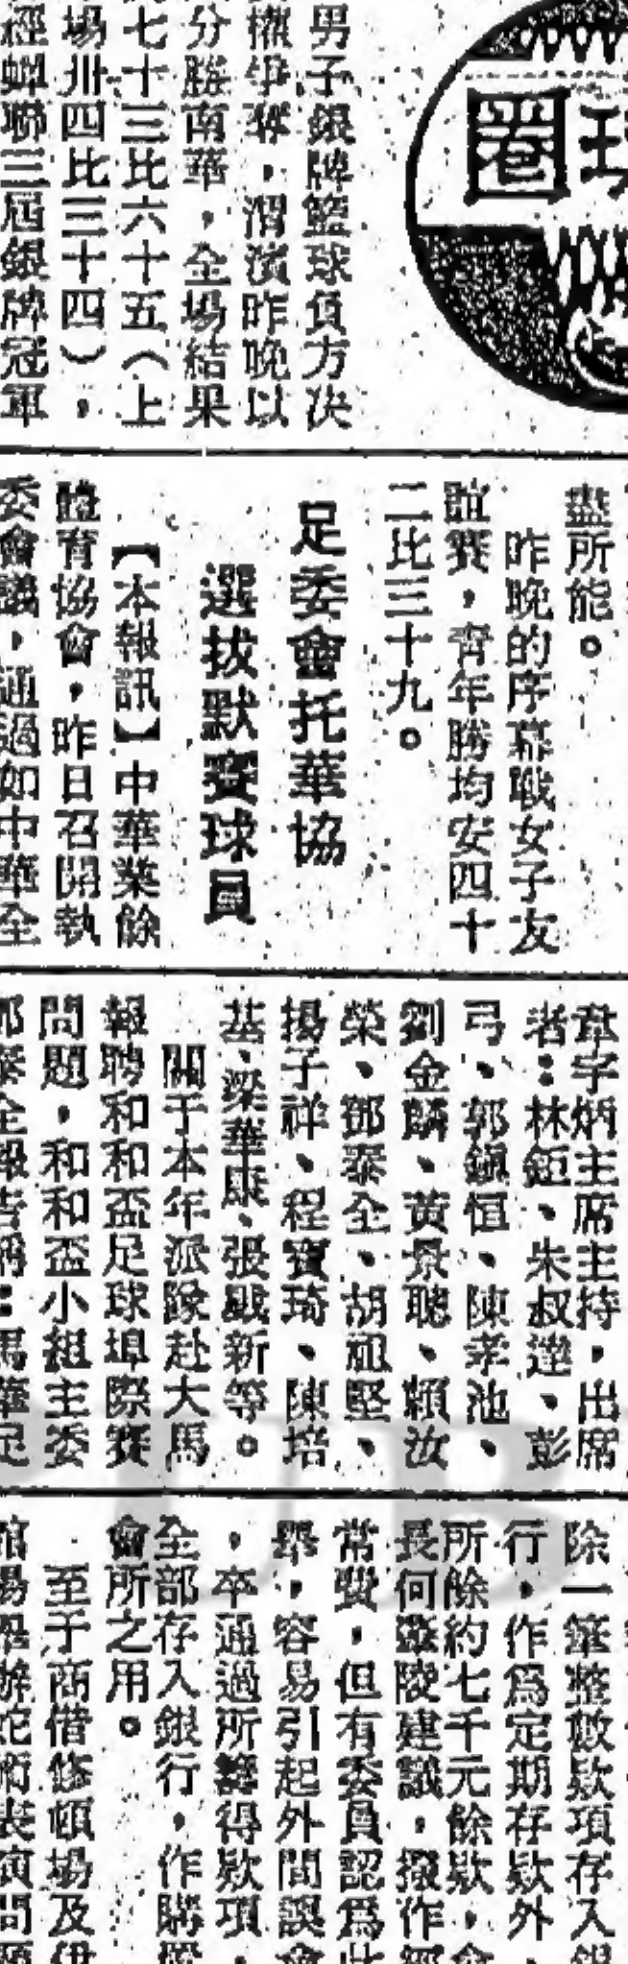 球圈
男子銀牌籃球負方決
權爭奪，渭濱昨晚以
分勝南華，全場結果
七十三比六十五（上
場卅四比三十四），
經蟬聯三屆銀牌冠軍
盡所能。
昨晚的序幕戰女子友
誼賽，青年勝均安四十
二比三十九。
足委會托華協
選拔默賽球員
【本報訊】中華業餘
體育協會，昨日召開執
委會議，通過如中華全
韋字炳主席主持，出席
者：林鉅、朱叔達、彭
弓、郭鎮恒、陳孝池、
劉金麟、黃景聰、賴汝
榮、鄧泰全、胡祖堅、
揚子祥、程寶琦、陳培
基、梁華康、張戩新等。
關于本年派隊赴大馬
報聘和和盃足球埠際賽
問題，和和盃小組主委
鄧泰全報告稱：馬華足
除一筆整數欵項存入銀
行，作爲定期存欵外，
所餘約七千元餘欵，會
長何 陵建議，撥作經
常費，但有委員認爲此
舉，容易引起外間誤會
，卒通過所籌得欵項，
全部存入銀行，作購置
會所之用。
至于商借修頓場及伊
館場 辦蛇術表演問題